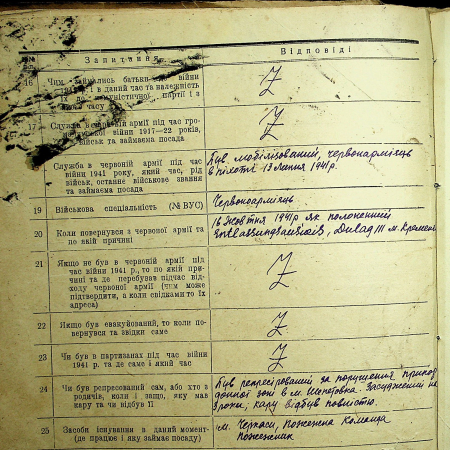 Запитання
Відповіді
16
Чим займались батьки до війни
і в даний час та належність
їх до комуністичної партії і з
якого часу
Z
17
Служба в старій армії під час гро-
війни 1917—22 років,
військ та займаєма посада
Z
Служба в червоній армії під час
війни 1941 року, який час, рід
військ, останнє військове звання
та займаєма посада
Був мобілізований, червоноармієць
в піхоті 13 липня 1941р.
19
Військова спеціяльність (№ ВУС)
Червоноармієць
20
Коли повернувся з червоної армії та
по якій причині
16 жовтня 1941р як полонений
Entlassungsausweis, Dulag м. Кремен
21
Якщо не був в червоній армії під
час війни 1941 р., то по якій при-
чині та де перебував підчас від-
ходу червоної армії (чим може
підтвердити, а коли свідками то їх
адреса)
Z
22
Якщо був евакуйований, то коли по-
вернувся та звідки саме
Z
23
Чи був в партизанах під час війни
1941 р. та де саме і який час
Z
24
Чи був репресований сам, або хто з
родичів, коли і защо, яку мав
кару та чи відбув її
Був репресірований за порушення прикор
донної зоні в м. Шепетовка. Засуджений на
3 роки; кару відбув повністю.
25
Засоби існування в даний момент-
(де працює і яку займає посаду)
м. Черкаси, Пожежна Команда
пожежник